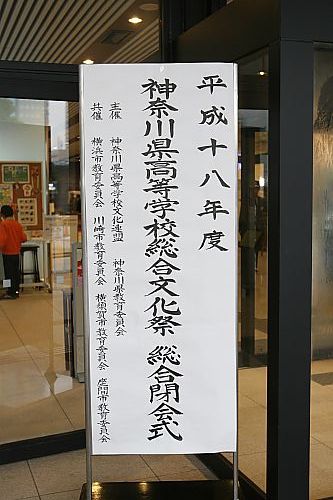 平成十八年度
神奈川県高等学校総合文化祭 総合閉会式
主催 神奈川県高等学校文化連盟 神奈川県教育委員会
共催 横浜市教育委員会 川崎市教育委員会 横須賀市教育委員会 座間市教育委員会